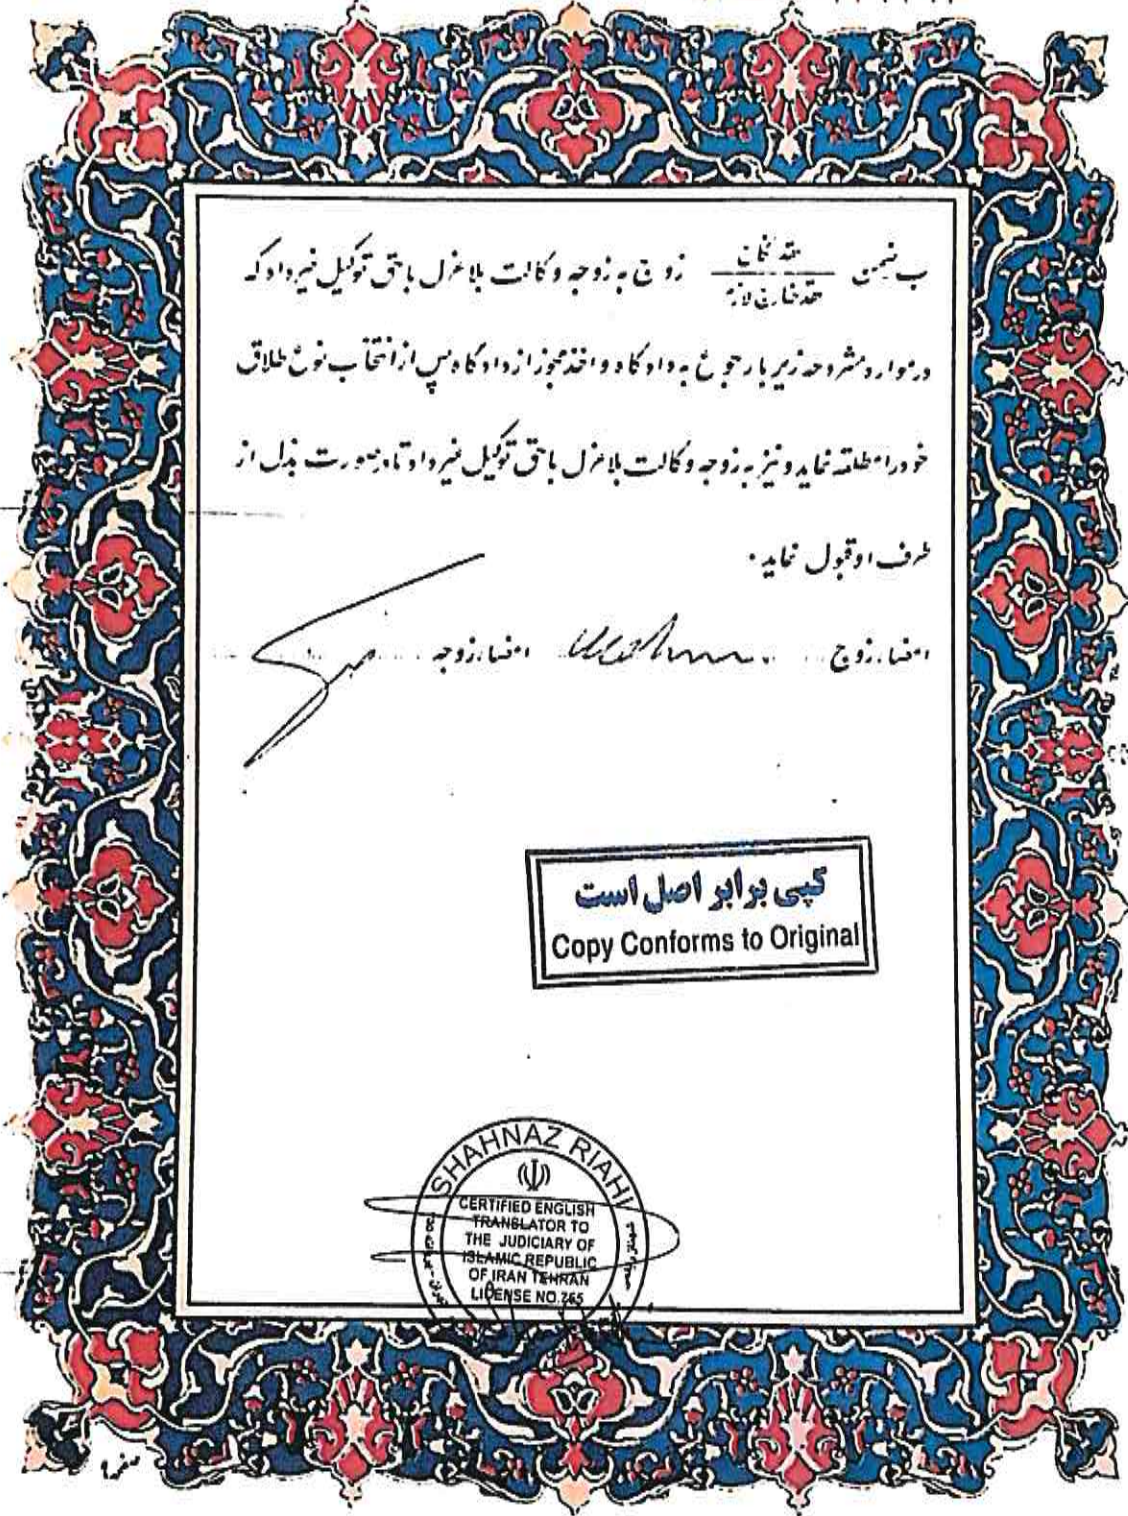 ب ضمن عقد نکاح / عقد خارج لازم زوج به زوجه وکالت بلاعزل با حق توکیل غیر داد که
در موارد مشروحه زیر با رجوع به دادگاه و اخذ مجوز از دادگاه پس از انتخاب نوع طلاق
خود را مطلقه نماید و نیز به زوجه وکالت بلاعزل با حق توکیل غیر داد تا در صورت بذل از
طرف او قبول نماید.
امضاء زوج امضاء زوجه
کپی برابر اصل است
Copy Conforms to Original
SHAHNAZ RIAHI
CERTIFIED ENGLISH
TRANSLATOR TO
THE JUDICIARY OF
ISLAMIC REPUBLIC
OF IRAN TEHRAN
LICENSE NO.265